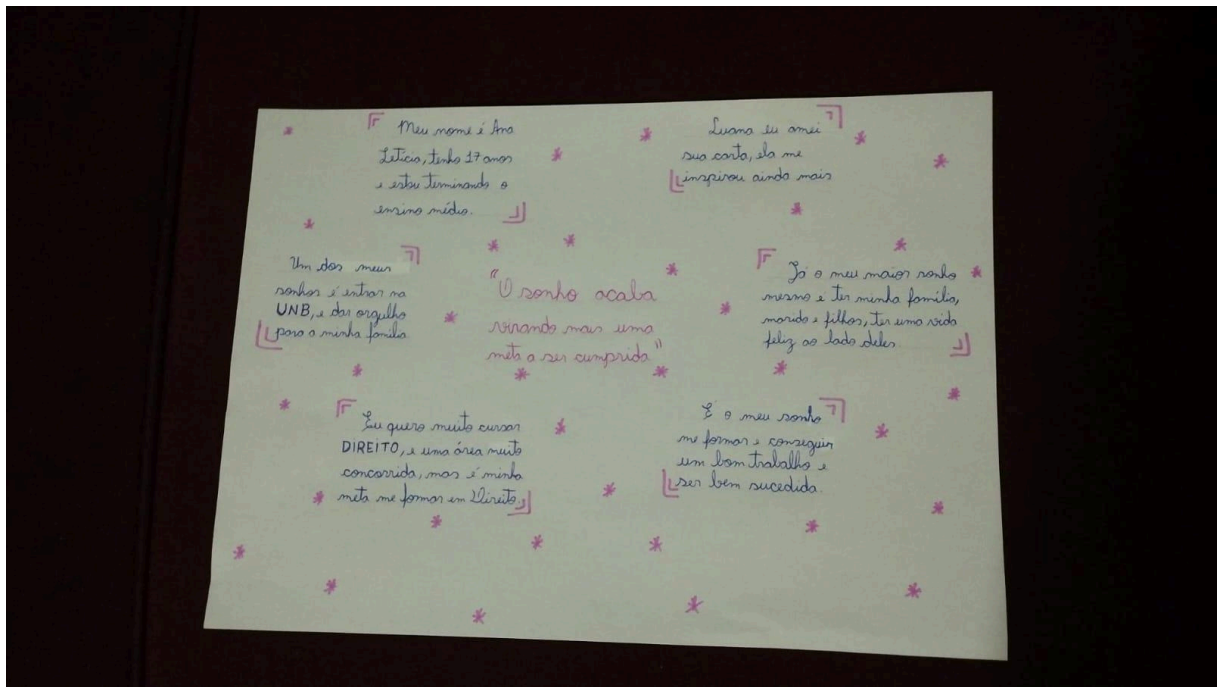 Meu nome é Ana
Letícia, tenho 17 anos
e estou terminando o
ensino médio.
Luana eu amei
sua carta, ela me
inspirou ainda mais
Um dos meus
sonhos é entrar na
UNB, e dar orgulho
para a minha família
"O sonho acaba
virando mais uma
meta a ser cumprida"
Já o meu maior sonho
mesmo e ter minha família,
marido e filhos, ter uma vida
feliz ao lado deles.
Eu quero muito cursar
DIREITO, e uma área muito
concorrida, mas é minha
meta me formar em Direito.
E o meu sonho
me formar e conseguir
um bom trabalho e
ser bem sucedida.